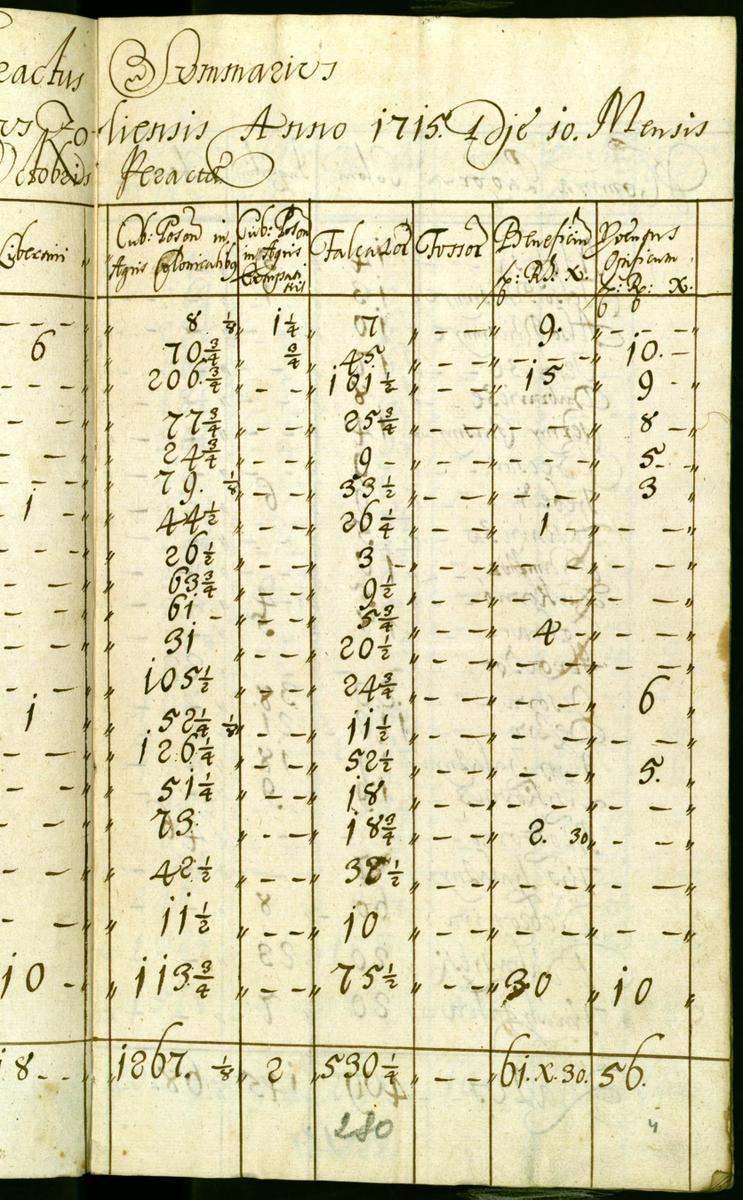 Summarius
liensis Anno 1715. Die 10. Mensis
Octobris Peractus
Libertini Cub: Poson in Agris Colonicalibus Cub: Poson in Agris Falcator Fossor Beneficiu fl: Rh: X. Proventus Opificum fl: Rh: X.
- - - 8 1/8 1 1/4 7 - - 9. - - -
6 70 3/4 3/4 45 - - - - - 10. -
- - - 206 3/4 - - 161 1/2 - - 15 9 -
- - 77 3/4 - - 25 3/4 - - - - - 8 -
- - 24 3/4 - - 9 - - - - - - 5. -
1 79. 1/8 - - 33 1/2 - - - - - 3
- - 44 1/2 - - 26 1/4 - - 1 - - -
- - 26 1/2 - - 3 - - - - - - - - -
- - 63 3/4 - - 9 1/2 - - - - - - - -
- - 61 - - - 5 3/4 - - - - - - - -
- - 31 - - 20 1/2 - - 4 - - - -
- - 105 1/2 - - 24 3/4 - - - - - 6
1 52 1/4 1/8 - - 11 1/2 - - - - - - - -
- - 126 1/4 - - 52 1/2 - - - - - 5.
- - 51 1/4 - - 18 - - - - - - - -
- - 73 - - 18 3/4 - - 2. 30 - - -
- - 42 1/2 - - 32 1/2 - - - - - - - -
- - 11 1/2 - - 10 - - - - - - - -
10 - 113 3/4 - - 75 1/2 - - 30 10
18 - - 1267. 1/8 2 530 1/4 - - 61. X. 30. 56.
280